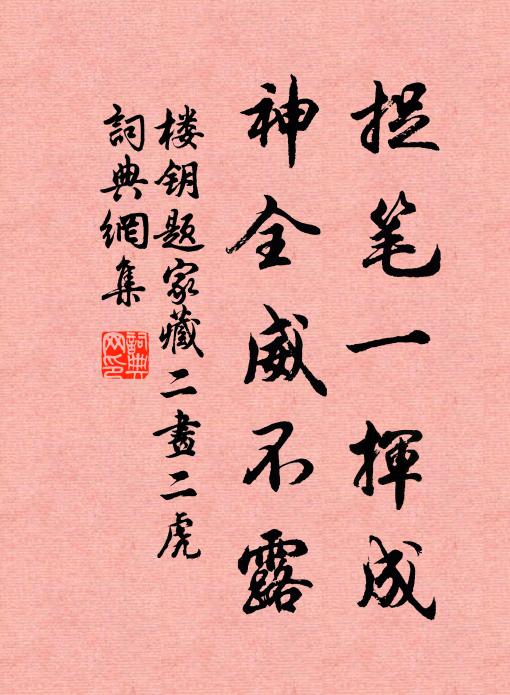 捉笔一揮成
神全威不露
楼钥题家藏二畫二虎
詞典網集
詞典
网印